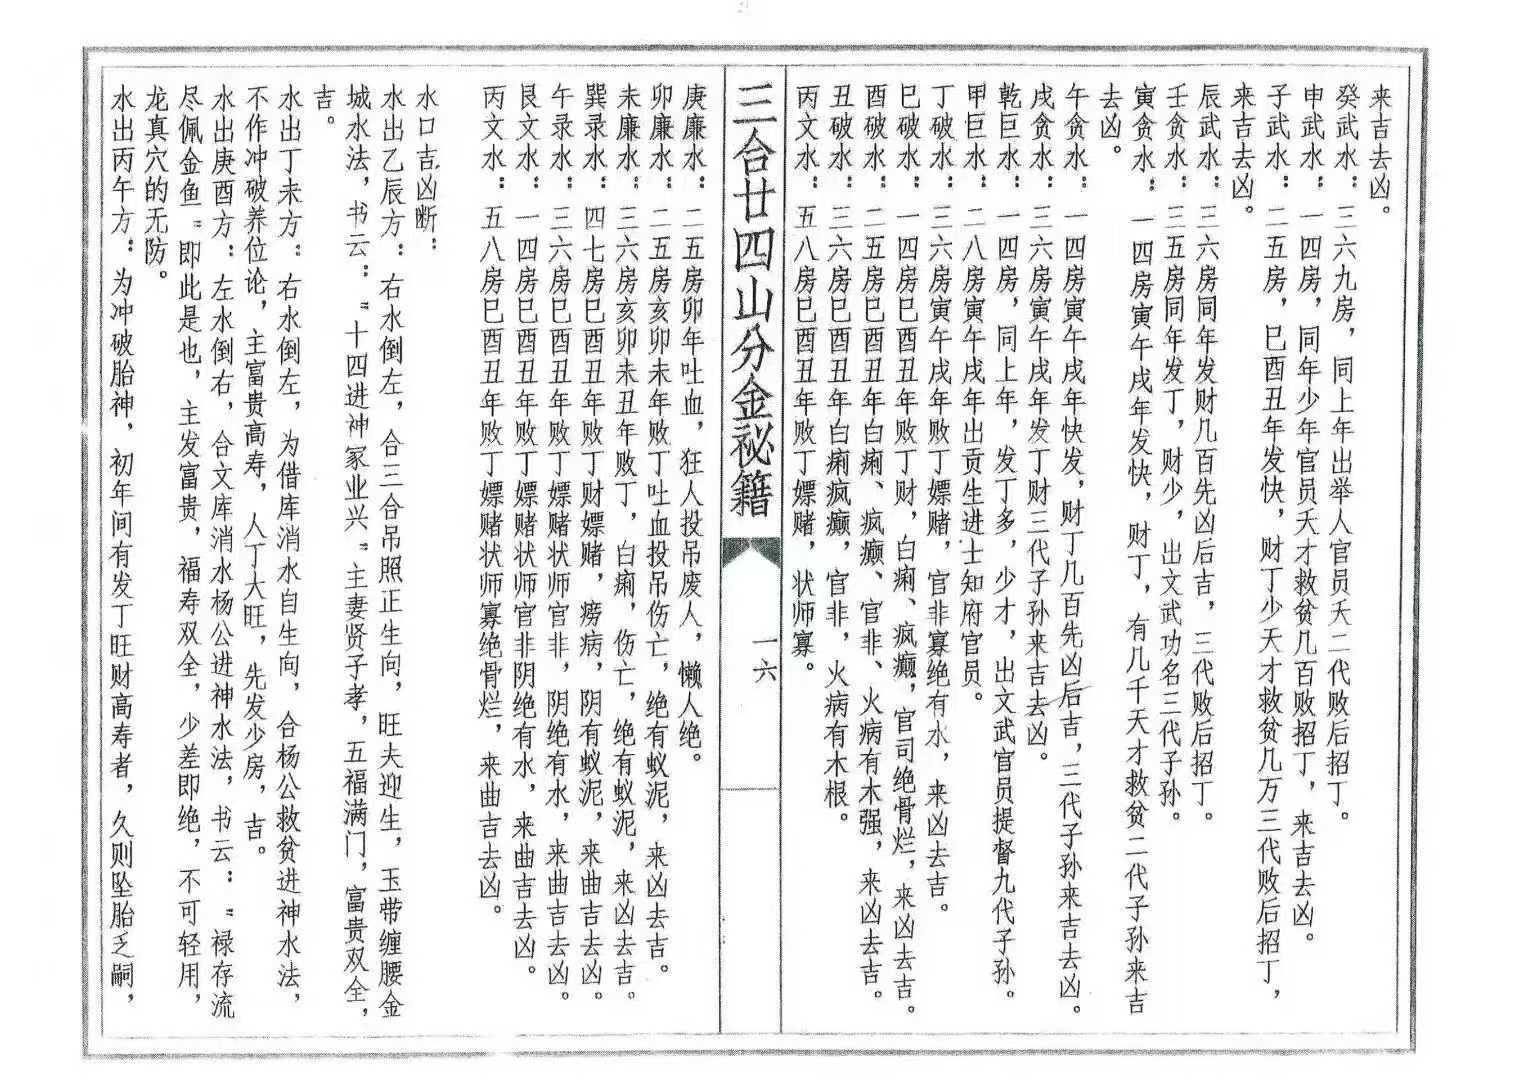 来吉去凶。
癸武水：三六九房，同上年出举人官员天二代败后招丁。
申武水：一四房，同年少年官员天才救贫几百败招丁，来吉去凶。
子武水：二五房，巳酉丑年发快，财丁少天才救贫几万三代败后招丁，
来吉去凶。
辰武水：三六房同年发财几百先凶后吉，三代败后招丁。
壬贪水：三五房同年发丁，财少，出文武功名三代子孙。
寅贪水：一四房寅午戌年发快，财丁，有几千天才救贫二代子孙来吉
去凶。
午贪水：一四房寅午戌年快发，财丁几百先凶后吉，三代子孙来吉去凶。
戌贪水：三六房寅午戌年发丁财三代子孙来吉去凶。
乾巨水：一四房，同上年，发丁多，少才，出文武官员提督九代子孙。
甲巨水：二八房寅午戌年出贡生进士知府官员。
丁破水：三六房寅午戌年败丁嫖赌，官非寡绝有水，来凶去吉。
巳破水：一四房巳酉丑年败丁财，白痢、疯癫，官司绝骨烂，来凶去吉。
酉破水：二五房巳酉丑年白痢、疯癫、官非、火病有木强，来凶去吉。
丑破水：三六房巳酉丑年白痢疯癫，官非，火病有木根。
丙文水：五八房巳酉丑年败丁嫖赌，状师寡。
三合廿四山分金秘籍
一六
庚廉水：二五房卯年吐血，狂人投吊废人，懒人绝。
卯廉水：二五房亥卯未年败丁吐血投吊伤亡，绝有蚁泥，来凶去吉。
未廉水：三六房亥卯未丑年败丁，白痢，伤亡，绝有蚁泥，来凶去吉。
巽录水：四七房巳酉丑年败丁财嫖赌，痨病，阴有蚁泥，来曲吉去凶。
午录水：三六房巳酉丑年败丁嫖赌状师官非，阴绝有水，来曲吉去凶。
艮文水：一四房巳酉丑年败丁嫖赌状师官非阴绝有水，来曲吉去凶。
丙文水：五八房巳酉丑年败丁嫖赌状师寡绝骨烂，来曲吉去凶。
水口吉凶断：
水出乙辰方：右水倒左，合三合吊照正生向，旺夫迎生，玉带缠腰金
城水法，书云：“十四进神家业兴”主妻贤子孝，五福满门，富贵双全，
吉。
水出丁未方：右水倒左，为借库消水自生向，合杨公救贫进神水法，
不作冲破养位论，主富贵高寿，人丁大旺，先发少房，吉。
水出庚酉方：左水倒右，合文库消水杨公进神水法，书云：“禄存流
尽佩金鱼”即此是也，主发富贵，福寿双全，少差即绝，不可轻用，
龙真穴的无防。
水出丙午方：为冲破胎神，初年间有发丁旺财高寿者，久则坠胎乏嗣，